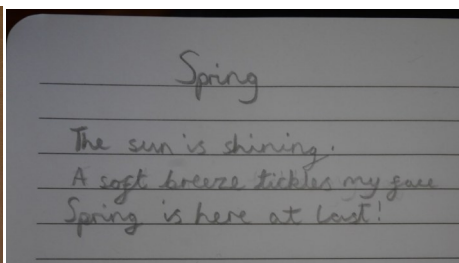 Spring
The sun is shining.
A soft breeze tickles my face
Spring is here at last!